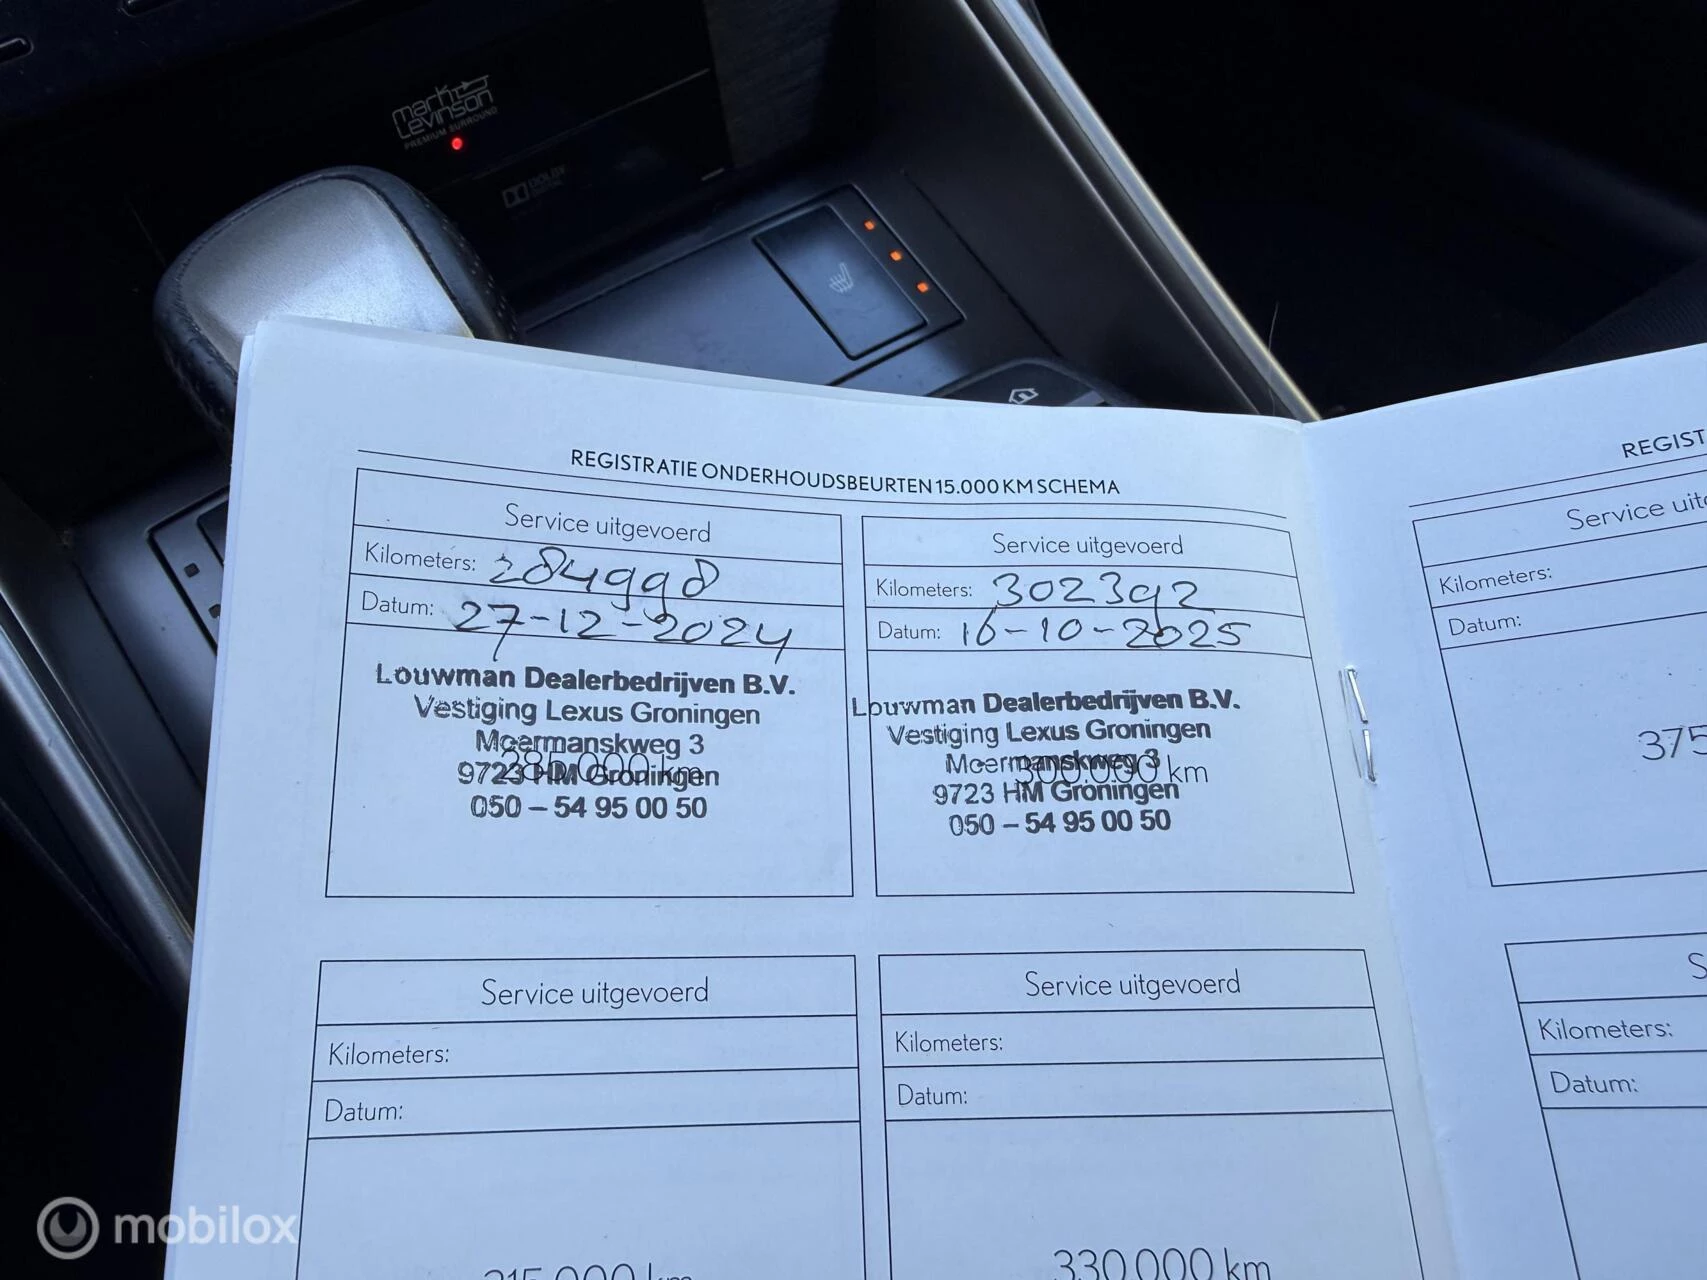 mark
Levinson
PREMIUM SURROUND
DOLBY
DIGITAL
REGISTRATIE ONDERHOUDSBEURTEN 15.000 KM SCHEMA
Service uitgevoerd
Kilometers: 284998
Datum: 27-12-2024
Louwman Dealerbedrijven B.V.
Vestiging Lexus Groningen
Moermanskweg 3
285.000 km
9723 HM Groningen
050 – 54 95 00 50
Service uitgevoerd
Kilometers: 302392
Datum: 16-10-2025
Louwman Dealerbedrijven B.V.
Vestiging Lexus Groningen
Moermanskweg 3
300.000 km
9723 HM Groningen
050 – 54 95 00 50
Service uitgevoerd
Kilometers:
Datum:
315.000 km
Service uitgevoerd
Kilometers:
Datum:
330.000 km
REGIST
Service uit
Kilometers:
Datum:
375
S
Kilometers:
Datum:
mobilox